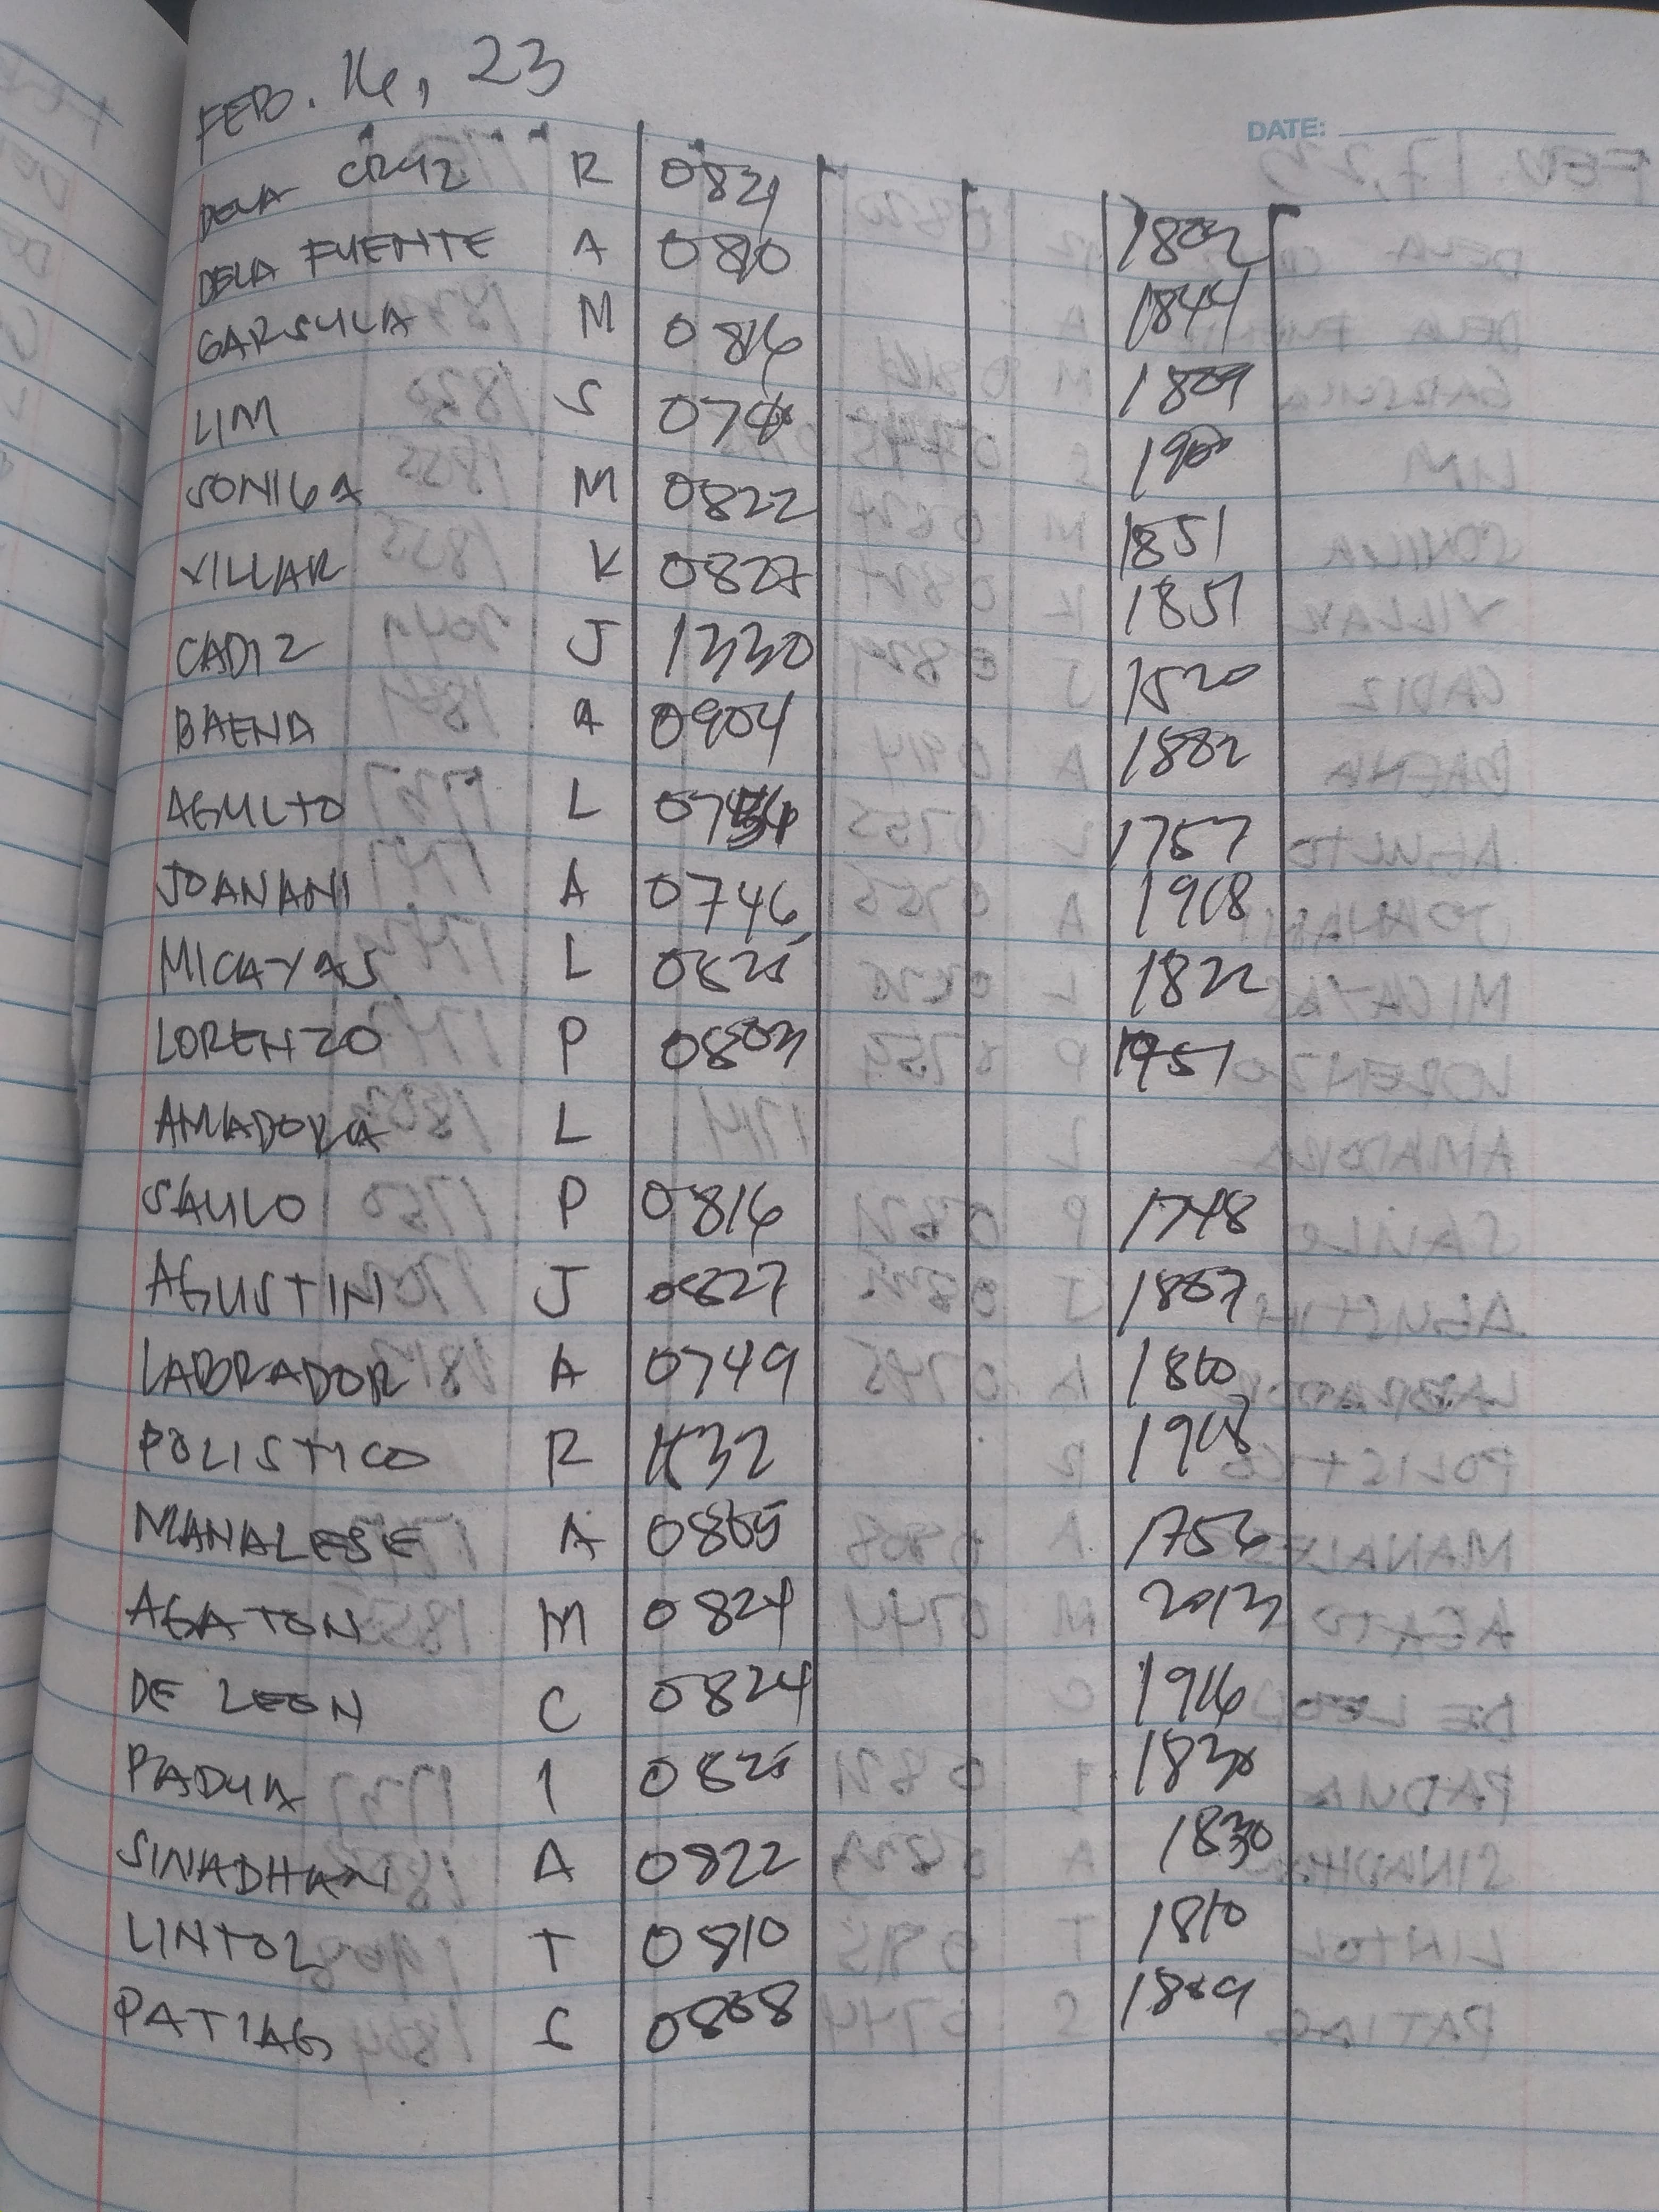 FEB. 16, 23
DATE:
DELA CRUZ R 0821 1802
DELA FUENTE A 0810 1844
GARSULA M 0816 1809
LIM S 1900
SONIGA M 0822 1851
VILLAR K 0827 1851
CADIZ J 1330 1520
BAENA A 0904 1802
AGULTO L 1757
JOANANI A 0746 1908
MICAYAS L 0825 1822
LORENZO P 0803 1951
AMADORA L
SAULO P 0816 1748
AGUSTIN J 0827 1807
LABRADOR A 0749 1800
POLISTICO R 1132 1908
MANALESE A 0805 1756
AGATON M 0824 2013
DE LEON C 0824 1916
PADUA I 0825 1830
SINADHAN A 0822 1830
LINTOL T 0810 1810
PATIAG S 0808 1809